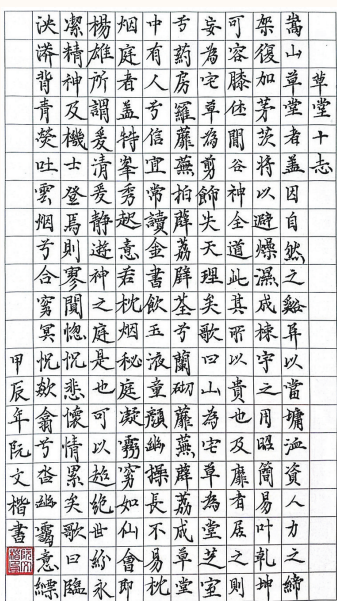 草堂十志
嵩山草堂者盖因自然之谿异以當墉洫資人力之締
架復加茅茨将以避燥濕成棟宇之用昭簡易叶乾坤
可容膝休間谷神全道此其所以貴也及靡者居之則
妄為宅草為剪飾失天理矣歌曰山為宅草為堂芝室
兮葯房羅蘼蕪拍薜荔辟荃兮蘭砌蘼蕪薜荔成草堂
中有人兮信宜常讀金書飲玉液童顔幽操長不易枕
烟庭者盖特峯秀起意若枕烟秘庭凝霧窅如仙會即
楊雄所謂爰清爰静遊神之庭是也可以超絶世紛永
潔精神及機士登焉則寥闃惚怳悲懷情累矣歌曰臨
泱漭背青熒吐雲烟兮合窅冥怳欻翕兮沓幽靄意縹
甲辰年阮文楷書